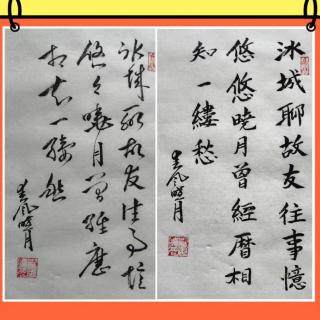 冰城聊故友往事憶
悠悠曉月曾經曆相
知一縷愁
春风曉月
冰城聊故友往事憶
悠悠曉月曾經歷
相知一縷愁
春风曉月